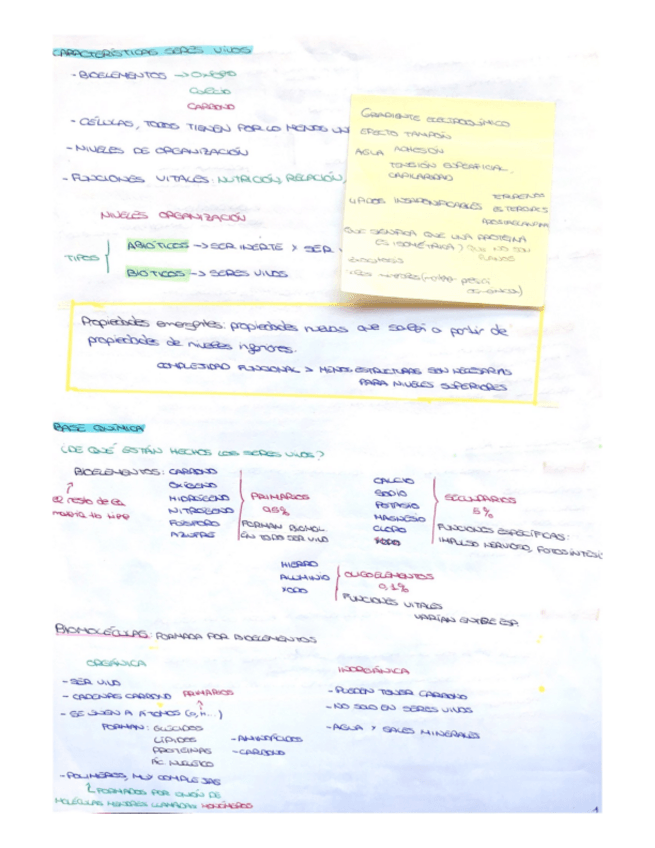 CARACTERÍSTICAS SERES VIVOS
- BIOELEMENTOS → OXÍGENO
CALCIO
CARBONO
- CÉLULAS, TODOS TIENEN POR LO MENOS UN
- NIVELES DE ORGANIZACIÓN
- FUNCIONES VITALES: NUTRICIÓN, RELACIÓN,
GRADIENTE ELECTROQUÍMICO
EFECTO TAMPÓN
AGUA ADHESIÓN
TENSIÓN SUPERFICIAL,
CAPILARIDAD
LÍPIDOS INSAPONIFICABLES TERPENOS
ESTEROIDES
PROSTAGLANDINA
QUE SIGNIFICA QUE UNA PROTEINA
ES ISOMÉTRICA? QUE NO SON
NIVELES ORGANIZACIÓN
TIPOS
ABIÓTICOS → SER INERTE Y SER
BIÓTICOS → SERES VIVOS
Propiedades emergentes: propiedades nuevas que salen a partir de
propiedades de niveles inferiores.
COMPLEJIDAD FUNCIONAL > MENOS ESTRUCTURAS SON NECESARIAS
PARA NIVELES SUPERIORES
BASE QUÍMICA
¿DE QUÉ ESTÁN HECHOS LOS SERES VIVOS?
BIOELEMENTOS: CARBONO
OXÍGENO
HIDRÓGENO
NITRÓGENO
FÓSFORO
AZUFRE
↑
El resto de la
materia no vive
PRIMARIOS
95%
FORMAN BIOMOL
EN TODO SER VIVO
CALCIO
SODIO
POTASIO
MAGNESIO
CLORO
YODO
SECUNDARIOS
5%
FUNCIONES ESPECÍFICAS:
IMPULSO NERVIOSO, FOTOSÍNTESIS
HIERRO
ALUMINIO
YODO
OLIGOELEMENTOS
0,1%
FUNCIONES VITALES
VARÍAN ENTRE ESP.
BIOMOLÉCULAS: FORMADA POR BIOELEMENTOS
ORGÁNICA
- SER VIVO
- CADENAS CARBONO PRIMARIOS
- SE UNEN A ÁTOMOS (O, H...)
FORMAN: GLÚCIDOS
LÍPIDOS
PROTEÍNAS
ÁC. NUCLEICO
- AMINOÁCIDOS
- CARBONO
- POLÍMEROS, MUY COMPLEJAS
FORMADOS POR UNIÓN DE
MOLÉCULAS MENORES LLAMADAS MONÓMEROS
INORGÁNICA
- PUEDEN TENER CARBONO
- NO SOLO EN SERES VIVOS
- AGUA Y SALES MINERALES
1